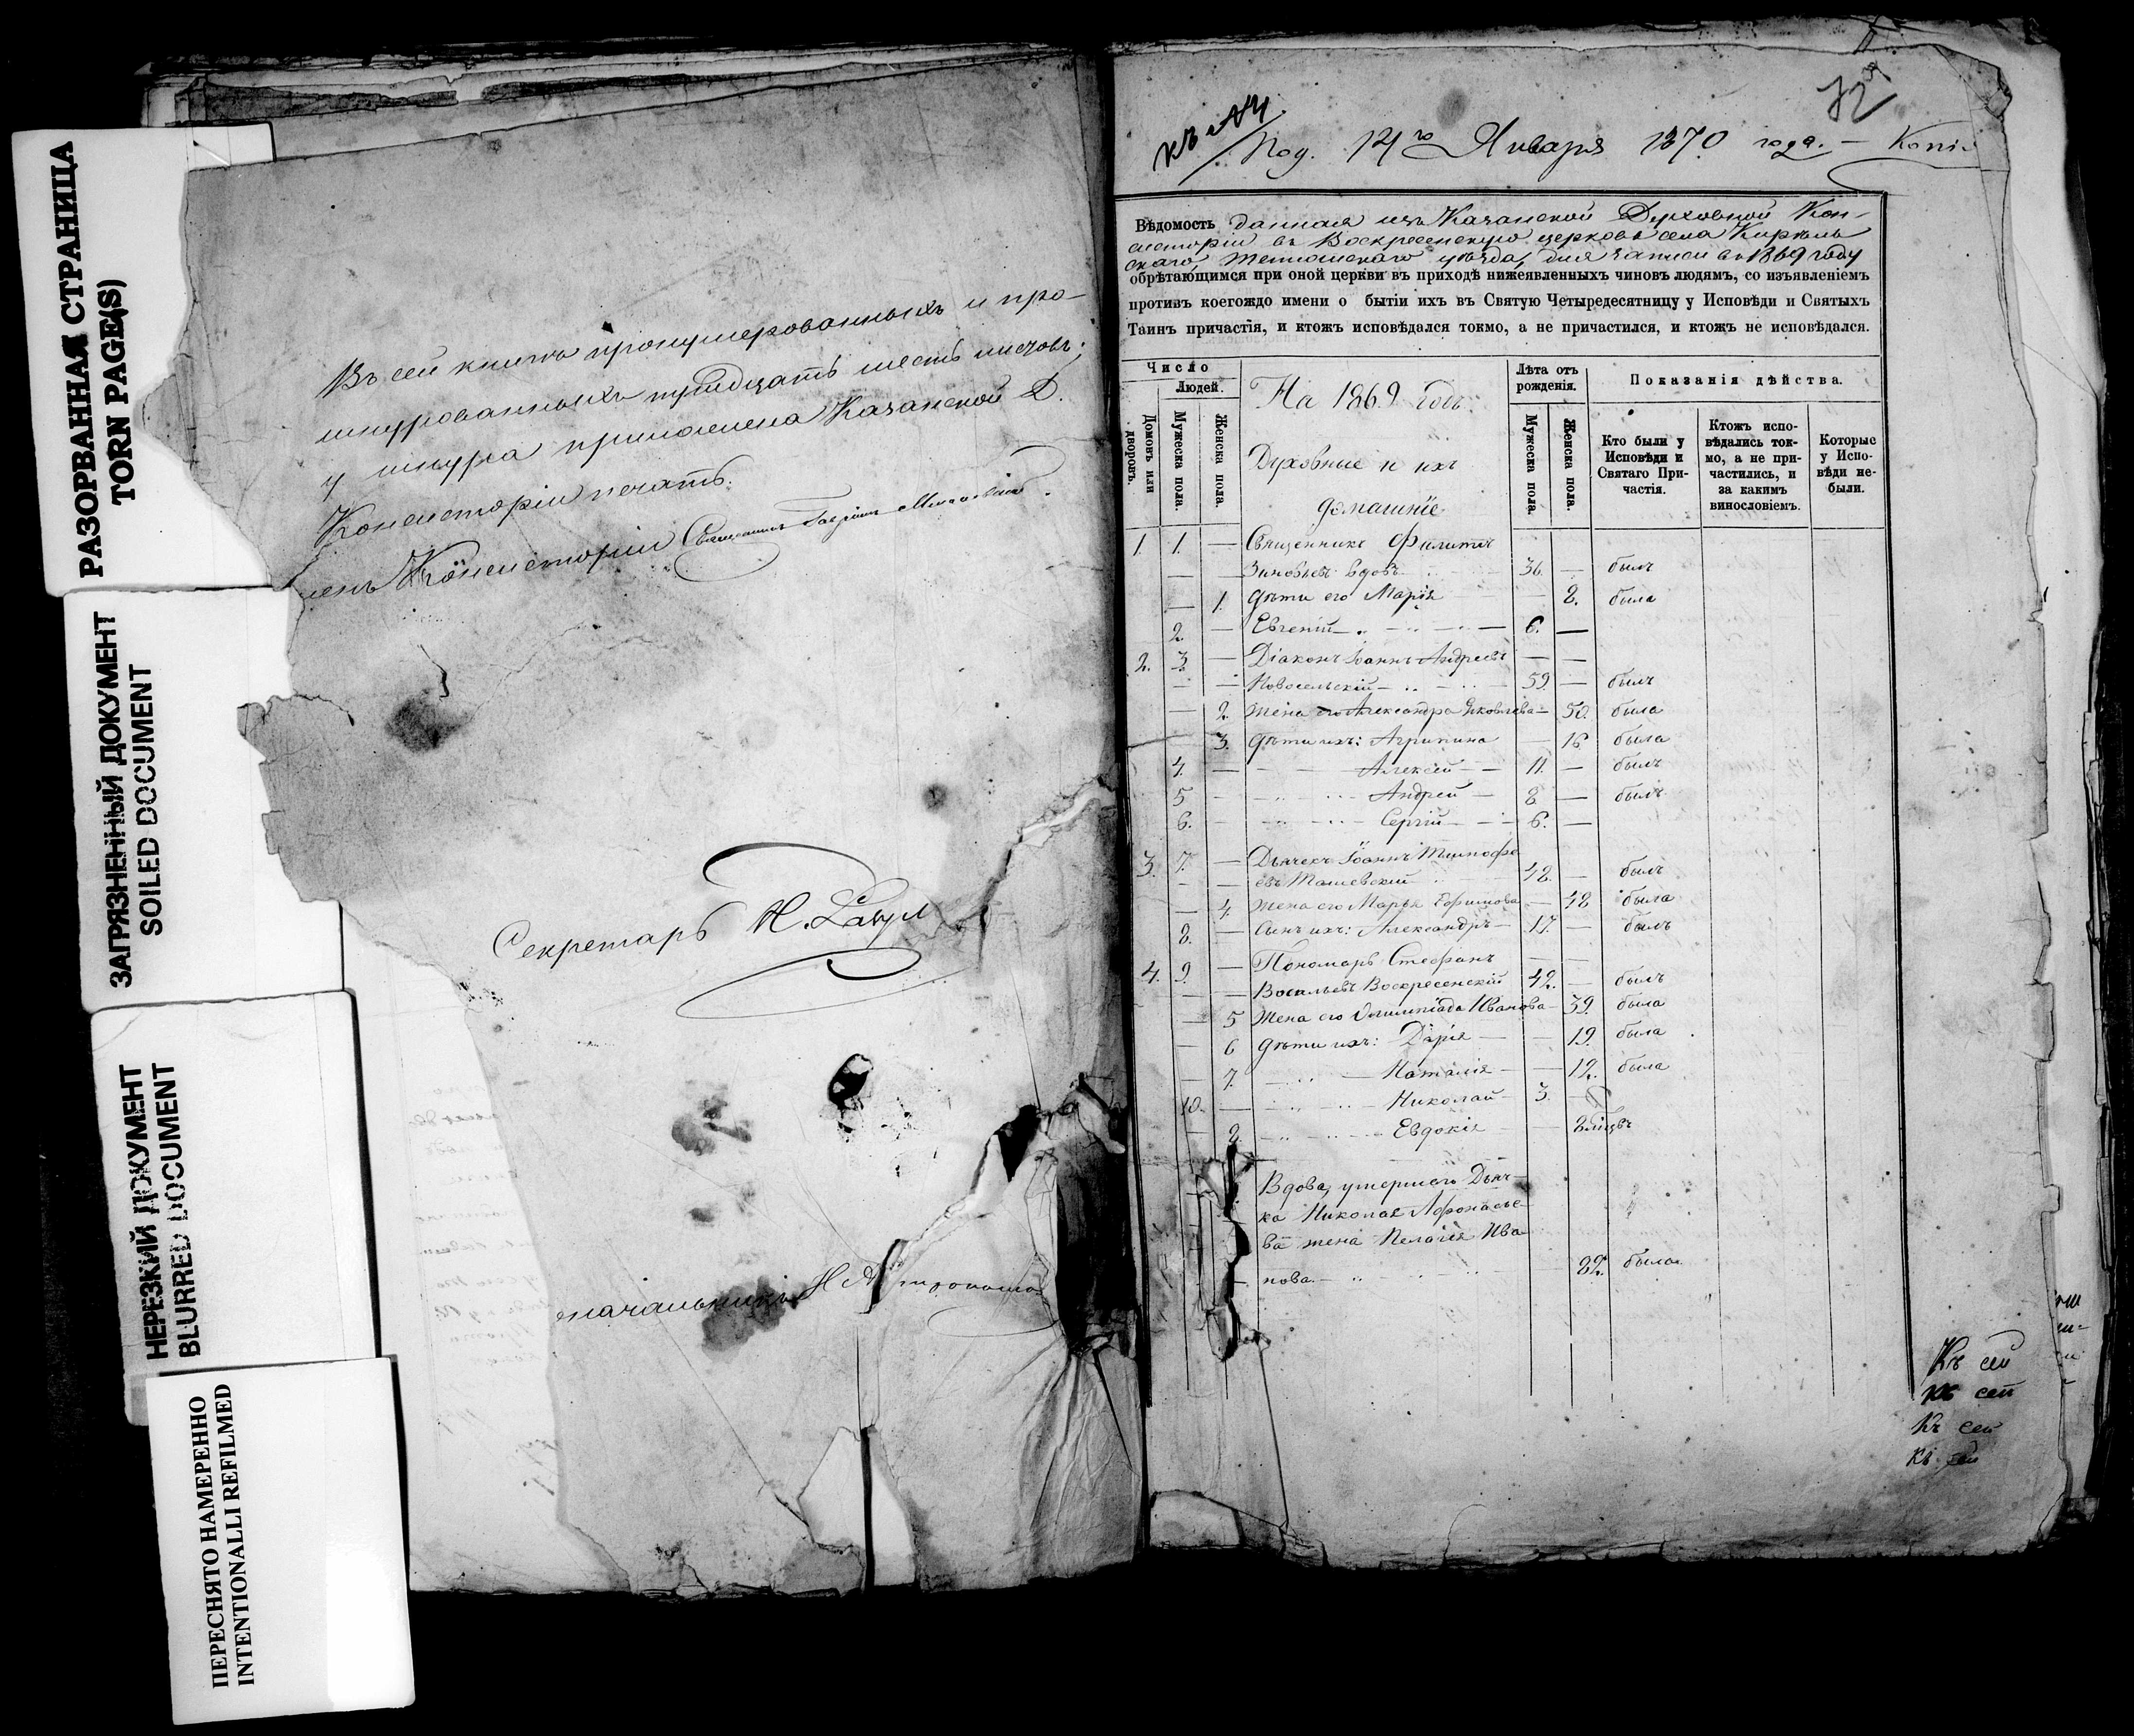 РАЗОРВАННАЯ СТРАНИЦА
TORN PAGE(S)
ЗАГРЯЗНЕННЫЙ ДОКУМЕНТ
SOILED DOCUMENT
НЕРЕЗКИЙ ДОКУМЕНТ
BLURRED DOCUMENT
ПЕРЕСНЯТО НАМЕРЕННО
INTENTIONALLI REFILMED
Въ сей книгѣ пронумерованныхъ и про-
шнурованныхъ тридцать шесть листовъ;
у шнура приложена Казанской Д.
Консисторіи печать.
Консисторіи Священникъ Гавріилъ
Секретарь Н.
72
Под. 14го Января 1870 года. — Копія
Вѣдомость данная изъ Казанской Духовной Кон-
систоріи въ Воскресенскую церковь села Кирѣль
скаго, Тетюшскаго уѣзда, для записи въ 1869 году
обрѣтающимся при оной церкви въ приходѣ нижеявленныхъ чиновъ людямъ, со изъявленіемъ
противъ коегождо имени о бытіи ихъ въ Святую Четыредесятницу у Исповѣди и Святыхъ
Таинъ причастія, и ктожъ исповѣдался токмо, а не причастился, и ктожъ не исповѣдался.
Число
Людей.
Домовъ или дворовъ.
Мужеска пола.
Женска пола.
На 1869 годъ.
Духовные и ихъ
домашніе
Лѣта отъ рожденія.
Мужеска пола.
Женска пола.
Показанія дѣйства.
Кто были у Исповѣди и Святаго Причастія.
Ктожъ исповѣдались токмо, а не причастились, и за какимъ винословіемъ.
Которые у Исповѣди небыли.
1. 1. — Священникъ Филиппъ
— — Зиновьевъ вдовъ 36. — былъ
— 1. Дѣти его Марія — 8. была
2. — Евгеній — 6. —
2. 3. — Діаконъ Іоаннъ Андреевъ — —
— — Новосельскій — 59. — былъ
— 2. Жена его Александра Яковлева — 50. была
3. Дѣти ихъ: Агрипина — 16 была
4. — Алексѣй — 11. — былъ
5 — Андрей — 8 — былъ
6. — Сергій — 6. —
3. 7. — Дьячекъ Іоаннъ Тимофе
— — евъ 48. — былъ
— 4. Жена его Марья Ефимова — 48 была
8. — Сынъ ихъ: Александръ — 17. — былъ
4. 9. — Пономарь Стефанъ — —
— — Васильевъ Воскресенскій 42. — былъ
— 5 Жена его Олимпіада Иванова — 39. была
— 6 Дѣти ихъ: Дарія — 19. была
— 7. — Наталія — 12. была
10. — Николай — 3. —
— 8. — Евдокія — 8 мѣсяцъ
Вдова, умершаго Дьяч-
ка Николая Афонасье-
ва жена Пелагія Ива
нова. — 82. была.
Къ сей
къ сей
къ сей
къ сей